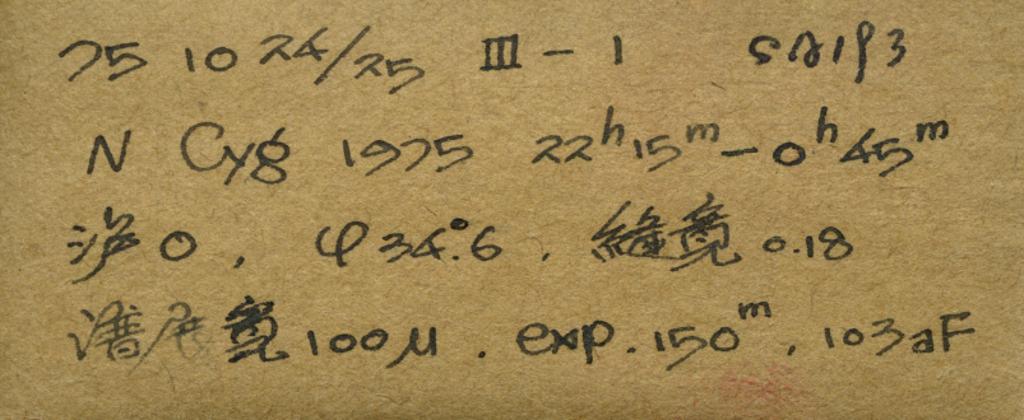 75 10 24/25 III - 1
N Cyg 1975 22ʰ15ᵐ - 0ʰ45ᵐ
0, φ34°.6, 縫寬 0.18
譜展寬 100μ. exp. 150ᵐ, 103aF